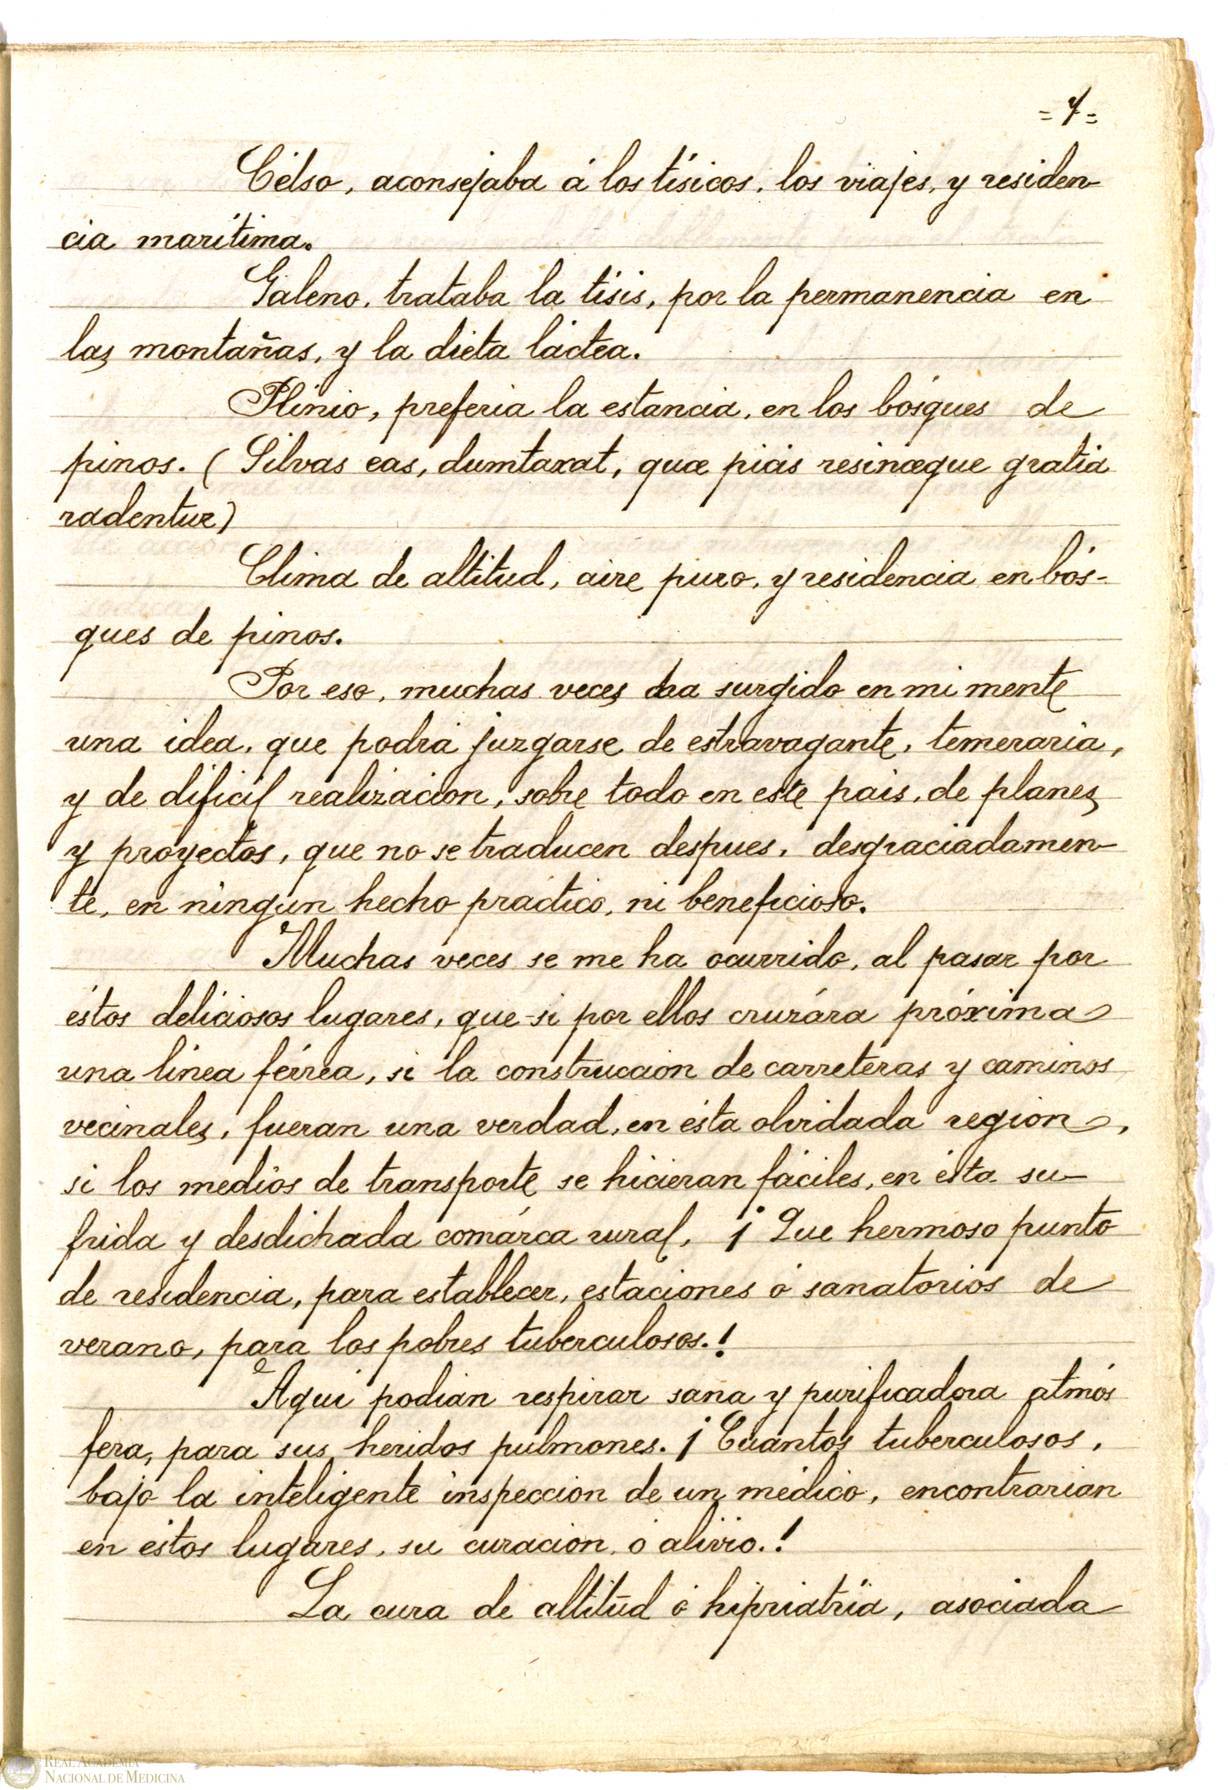 = 7 =
Célso, aconsejaba á los tísicos, los viajes, y residen-
cia marítima.
Galeno, trataba la tísis, por la permanencia en
las montañas, y la dieta láctea.
Plinio, preferia la estancia, en los bósques de
pinos. (Silvas eas, dumtaxat, quæ picis resinæque gratia
radentur)
Clima de altitud, aire puro, y residencia en bós-
ques de pinos.
Por eso, muchas veces ha surgido en mi mente
una idea, que podrá juzgarse de estravagante, temeraria,
y de dificil realizacion, sobre todo en este pais, de planes
y proyectos, que no se traducen despues, desgraciadamen-
te, en ningun hecho práctico, ni beneficioso.
Muchas veces se me ha ocurrido, al pasar por
éstos deliciosos lugares, que si por ellos cruzára próxima
una linea férrea, si la construccion de carreteras y caminos
vecinales, fueran una verdad, en ésta olvidada region,
si los medios de transporte se hicieran fáciles, en ésta su-
frida y desdichada comárca rural, ¡ Que hermoso punto
de residencia, para establecer, estaciones ó sanatorios de
verano, para los pobres tuberculosos.!
Aqui podian respirar sana y purificadora atmós
fera, para sus heridos pulmones. ¡ Cuantos tuberculosos,
bajo la inteligente inspeccion de un médico, encontrarian
en éstos lugares, su curacion, ó alivio.!
La cura de altitud ó hipriatria, asociada
REAL ACADEMIA
NACIONAL DE MEDICINA